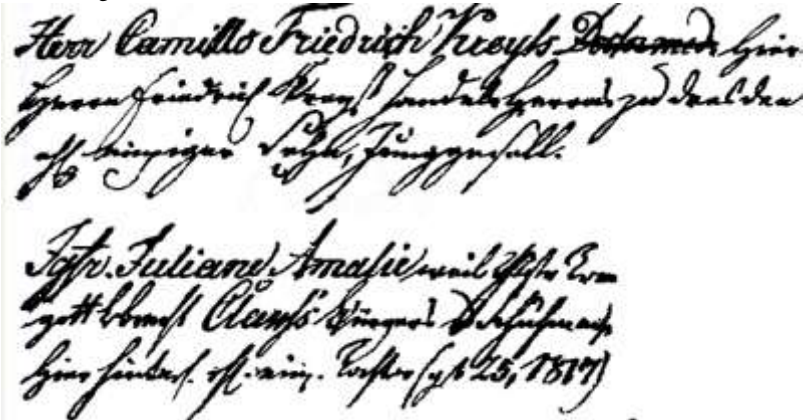 Herr Camillo Friedrich Kreyß hier
Herrn Friedrich Kreyß Handels Herrns zu Dresden
ehl. einziger Sohn, Junggesell.
Igfr. Juliane Amalie weil. Mstr. Trau
gott Clauß Bürgers u. Schuhmach.
hier hinterl. ehl. einz. Tochter (geb. 25, 1817)